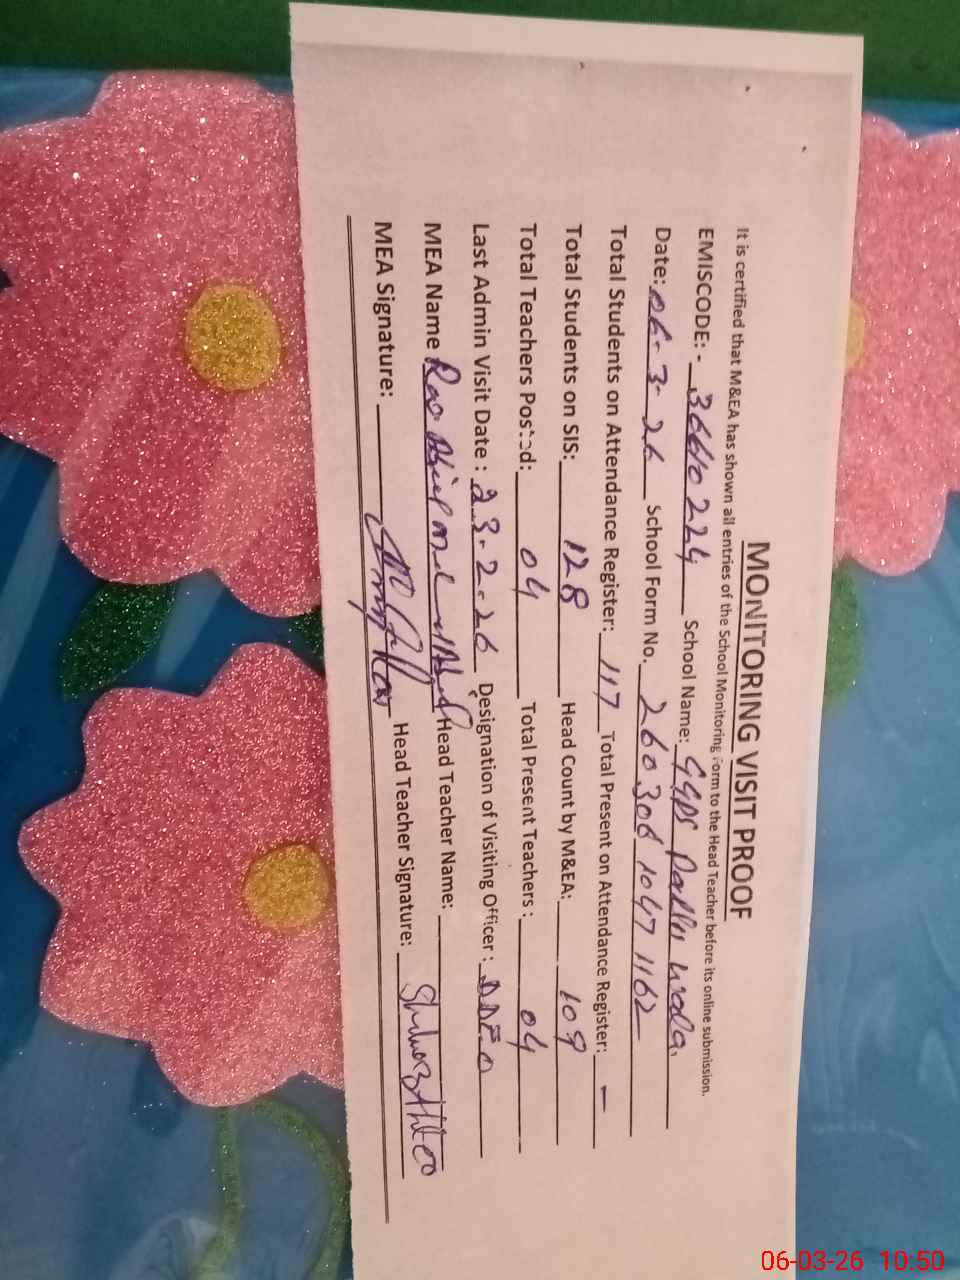 MONITORING VISIT PROOF
It is certified that M&EA has shown all entries of the School Monitoring Form to the Head Teacher before its online submission.
EMISCODE: - 36610224 School Name: GGPS Wala.
Date: 06-3-26 School Form No. 260306 1047 1162
Total Students on Attendance Register: 117 Total Present on Attendance Register: -
Total Students on SIS: 128 Head Count by M&EA: 109
Total Teachers Posted: 04 Total Present Teachers : 04
Last Admin Visit Date : 23-2-26 Designation of Visiting Officer : DDEO
MEA Name Rao Head Teacher Name:
MEA Signature: Head Teacher Signature:
06-03-26 10:50